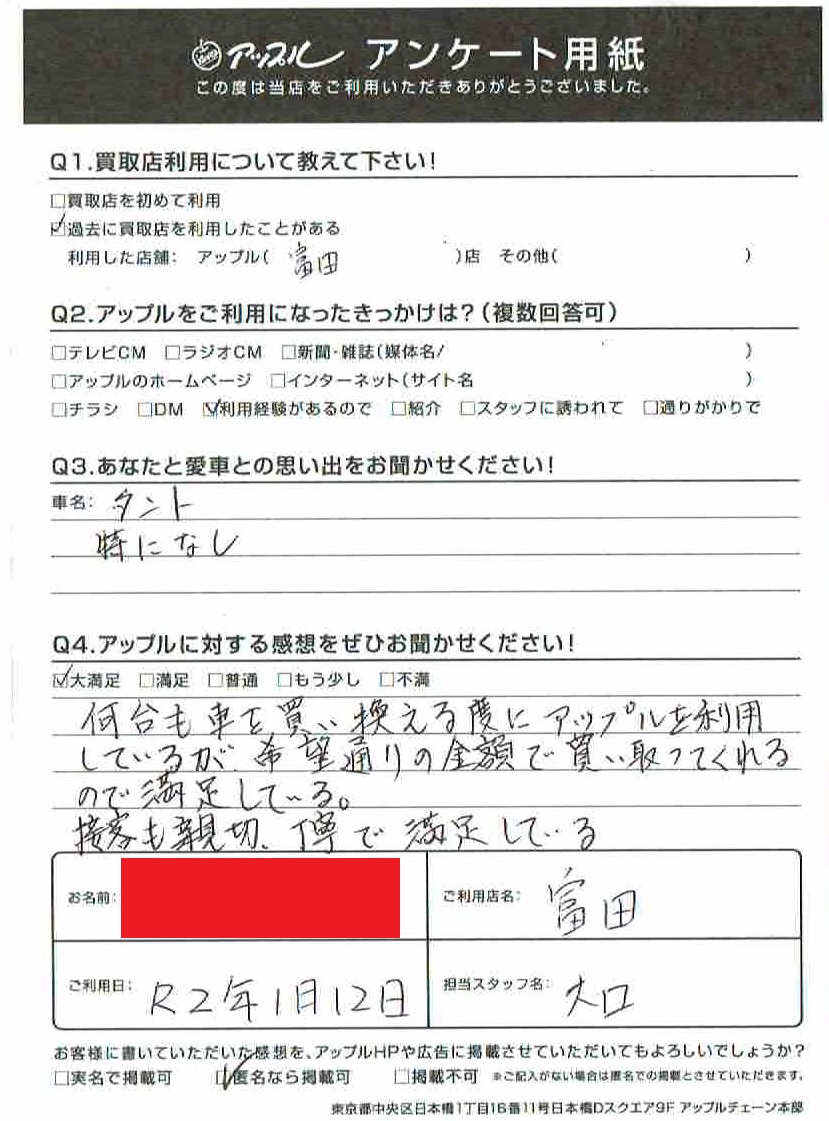 アップル アンケート用紙
この度は当店をご利用いただきありがとうございました。
Q1.買取店利用について教えて下さい!
□買取店を初めて利用
☑過去に買取店を利用したことがある
利用した店舗: アップル( 富田 )店 その他( )
Q2.アップルをご利用になったきっかけは?(複数回答可)
□テレビCM □ラジオCM □新聞・雑誌(媒体名/ )
□アップルのホームページ □インターネット(サイト名 )
□チラシ □DM ☑利用経験があるので □紹介 □スタッフに誘われて □通りがかりで
Q3.あなたと愛車との思い出をお聞かせください!
車名: タント
特になし
Q4.アップルに対する感想をぜひお聞かせください!
☑大満足 □満足 □普通 □もう少し □不満
何台も車を買い換える度にアップルを利用
しているが、希望通りの金額で買い取ってくれる
ので満足している。
接客も親切、丁寧で満足している
お名前:
ご利用店名: 富田
ご利用日: R2年1月12日
担当スタッフ名: 大口
お客様に書いていただいた感想を、アップルHPや広告に掲載させていただいてもよろしいでしょうか?
□実名で掲載可 ☑匿名なら掲載可 □掲載不可 ※ご記入がない場合は匿名での掲載とさせていただきます。
東京都中央区日本橋1丁目16番11号日本橋Dスクエア9F アップルチェーン本部